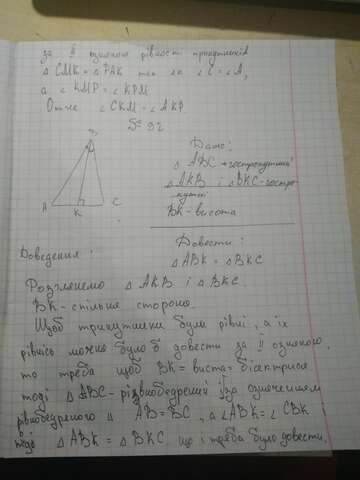 за ІІ ознакою рівності трикутників
△ CMK = △ PAK так як ∠C = ∠A,
а ∠ KMP = ∠ KPM
Отже ∠CKM = ∠AKP
№ 92
B
A
K
C
Дано:
△ ABC - гострокутний
△ AKB і △BKC - гостро-
кутні
BK - висота
Довести:
△ ABK = △ BKC
Доведення:
Розглянемо △ AKB і △ BKC.
BK - спільна сторона.
Щоб трикутники були рівні, а їх
рівнісь можна було б довести за ІІ ознакою.
то треба щоб BK = виста = бісектриса
тоді △ABC - рівнобедрений і за означенням
рівнобедреного △ AB = BC, а ∠ABK = ∠ CBK
тоді △ ABK = △ BKC, що і треба було довести.